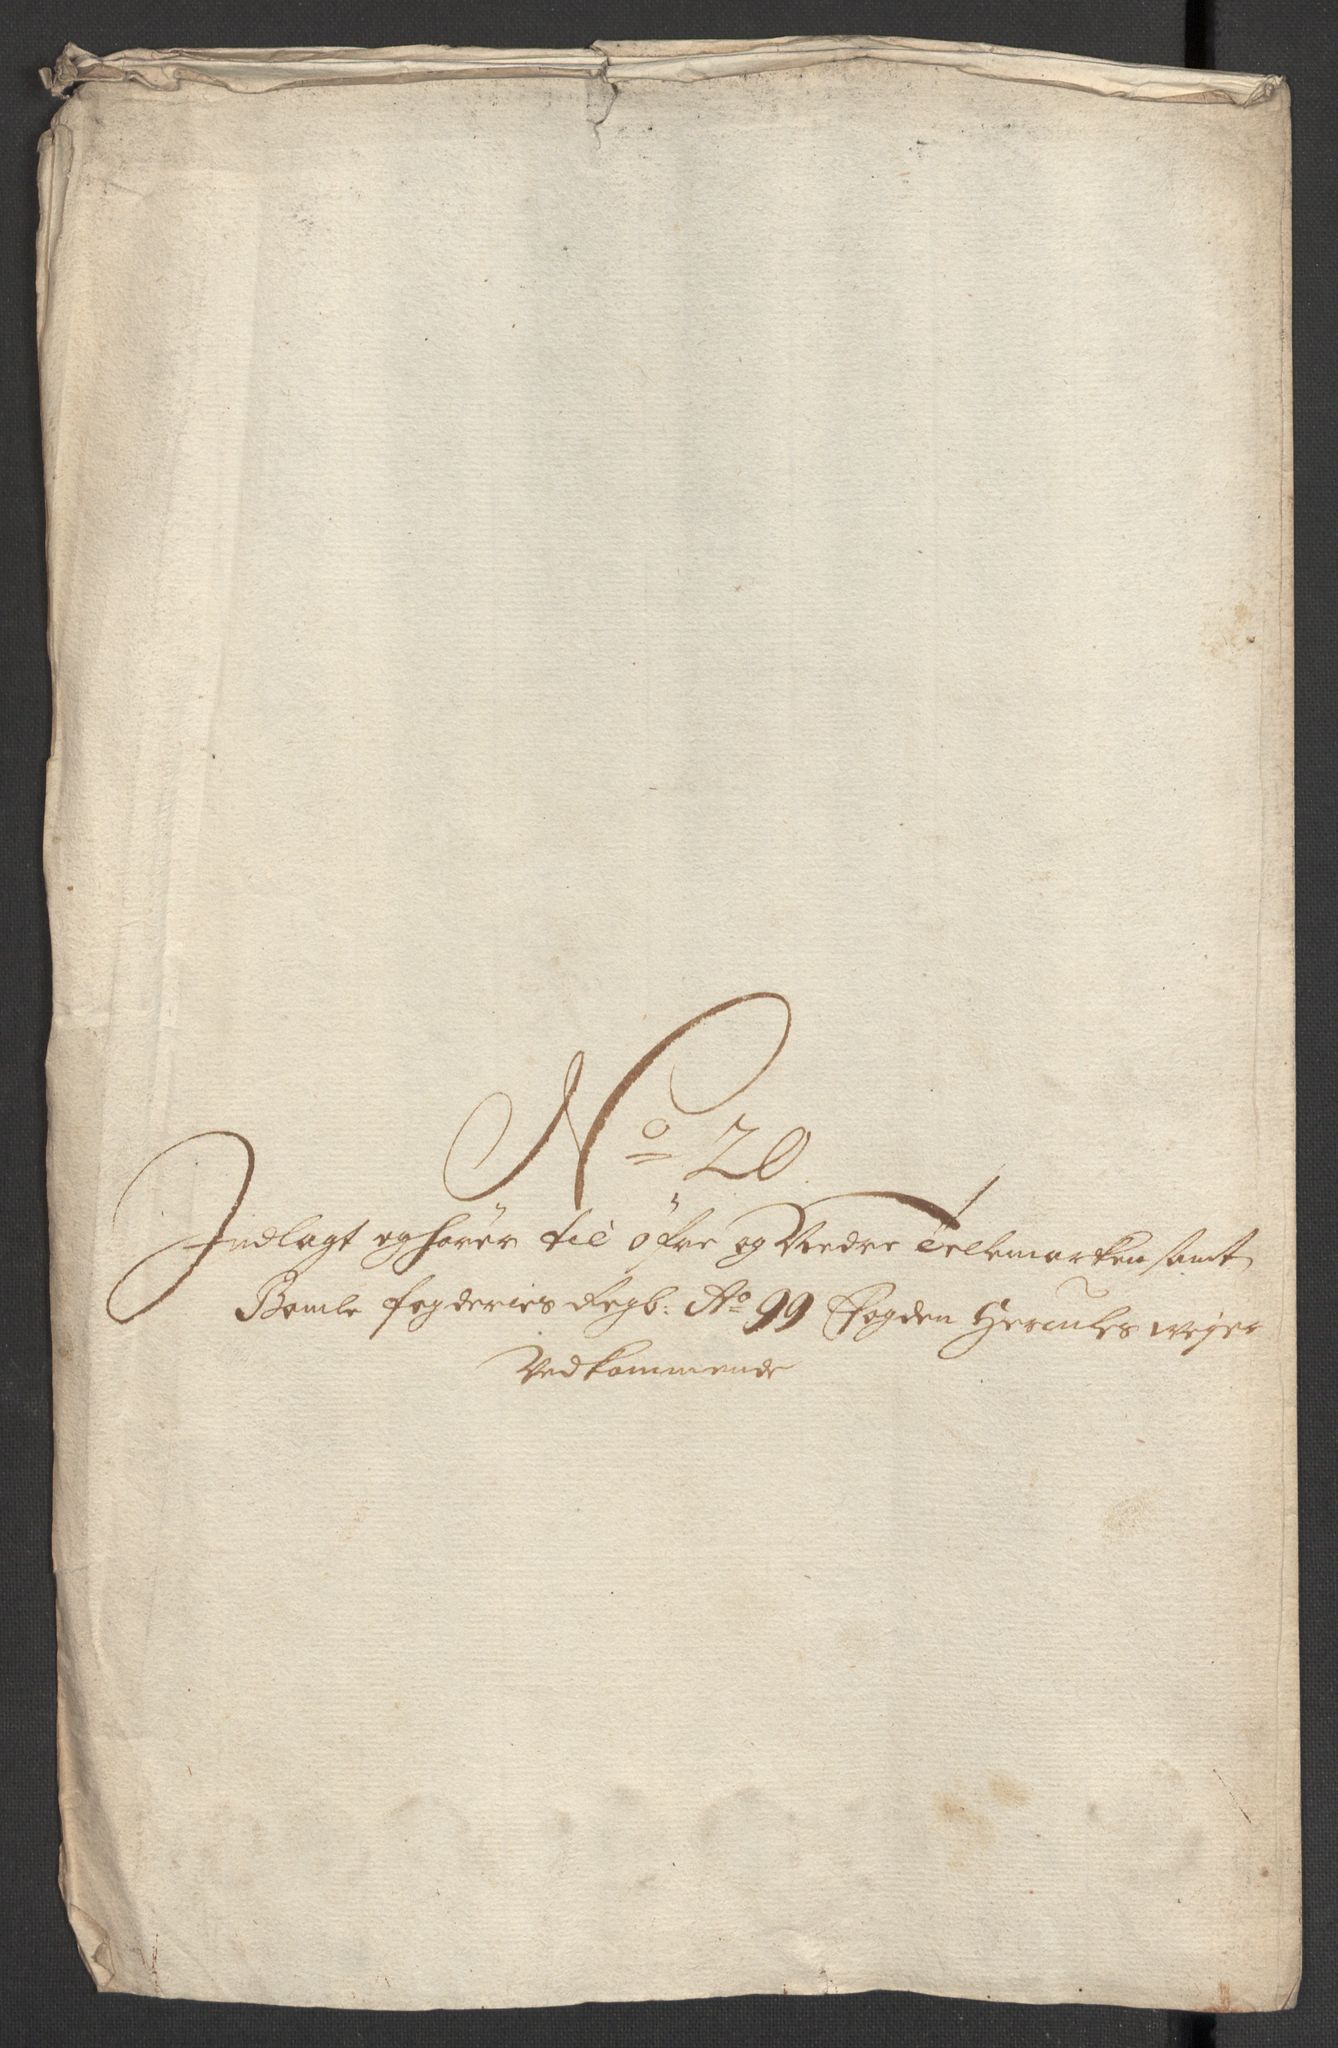 No 20
Indlagt og hører til øfre og Nedre Tellemarken samt
Bamle fogderies Regb: Ao 99 Fogden Hercules weyer
Vedkommende